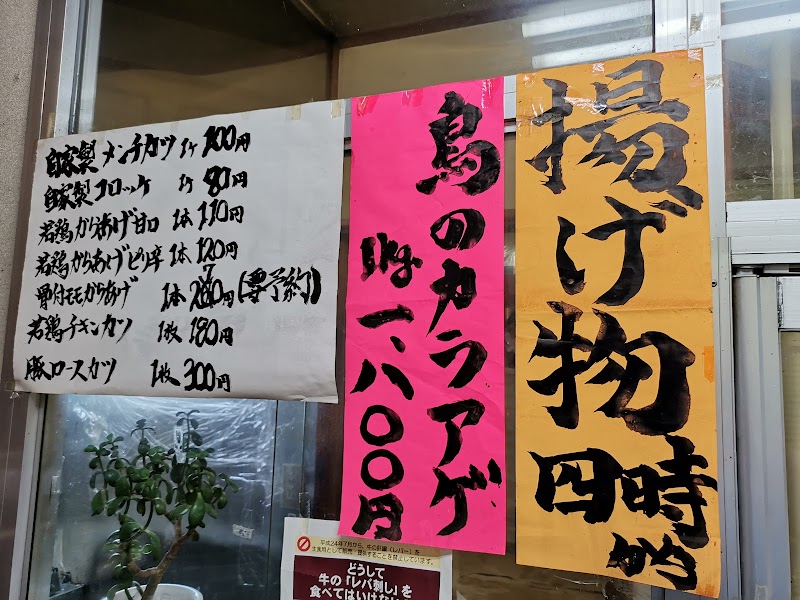 自家製 メンチカツ 1ケ 100円
自家製 コロッケ 1ケ 80円
若鶏からあげ甘口 1本 110円
若鶏からあげピリ辛 1本 120円
骨付モモからあげ 1本 円(要予約)
若鶏チキンカツ 1枚 180円
豚ロースカツ 1枚 300円
鳥のカラアゲ
一、八〇〇円
揚げ物
四時から
平成24年7月から、牛の肝臓(レバー)を
生食用として販売・提供することを禁止しています。
どうして
牛の「レバ刺し」を
食べてはいけない